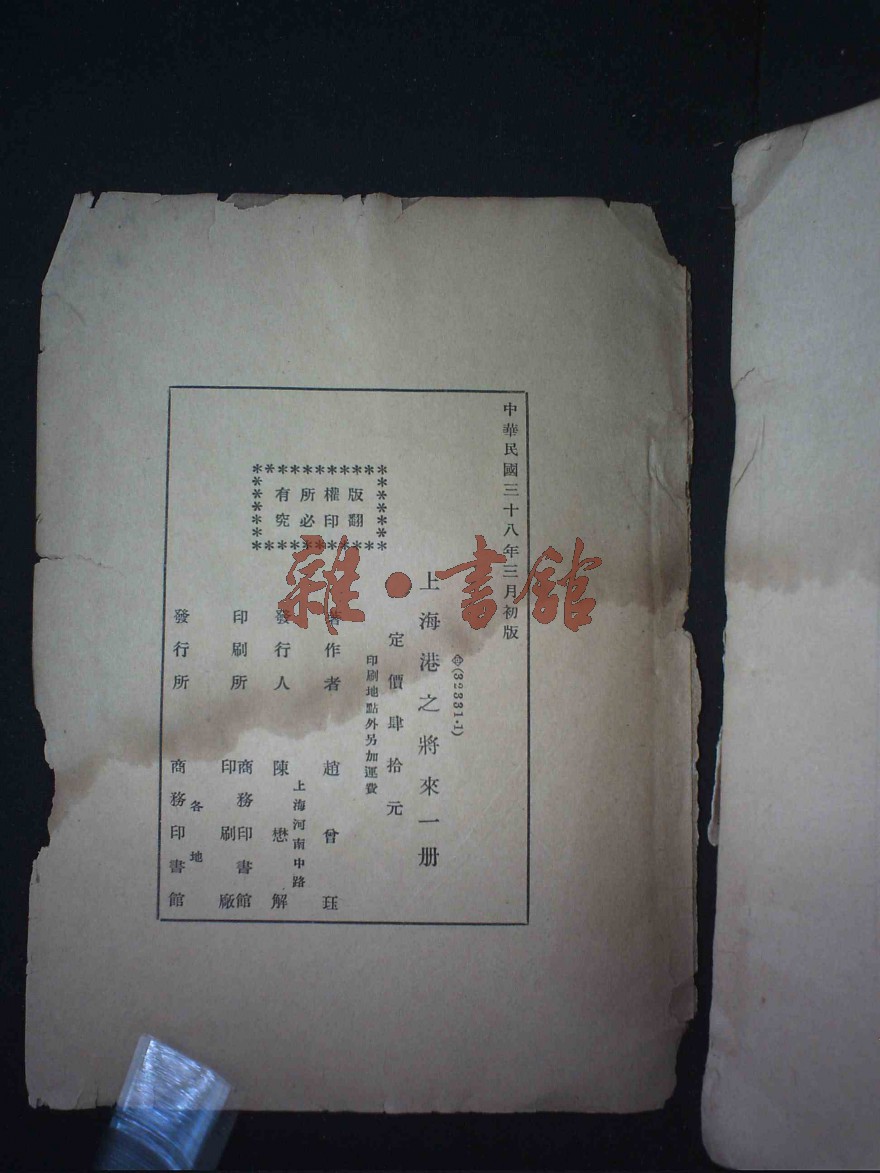 中華民國三十八年三月初版
(32331·1)
上海港之將來一册
定價肆拾元
印刷地點外另加運費
版權所有
翻印必究
著作者 趙曾珏
上海河南中路
發行人 陳懋解
印刷所 商務印書館
印刷廠
各地
發行所 商務印書館
雜·書館